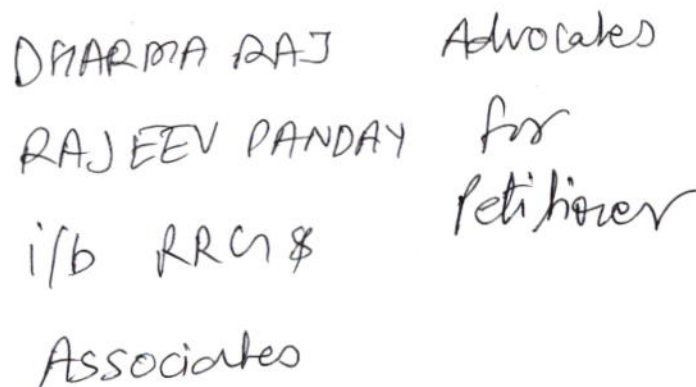 DHARMA RAJ
RAJEEV PANDAY
i/b RRG &
Associates
Advocates
for
Petitioner